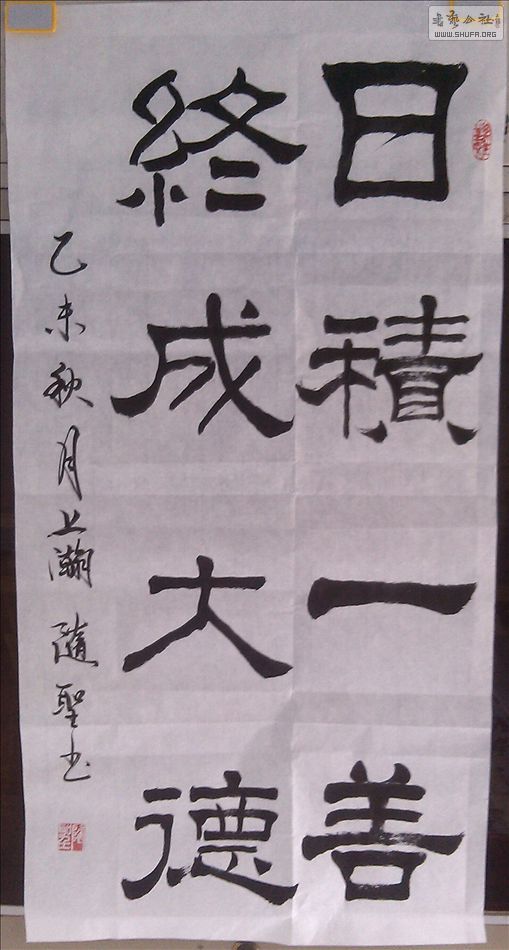 日積一善
終成大德
乙未秋月上瀚 隨聖书
書藝公社
WWW.SHUFA.ORG